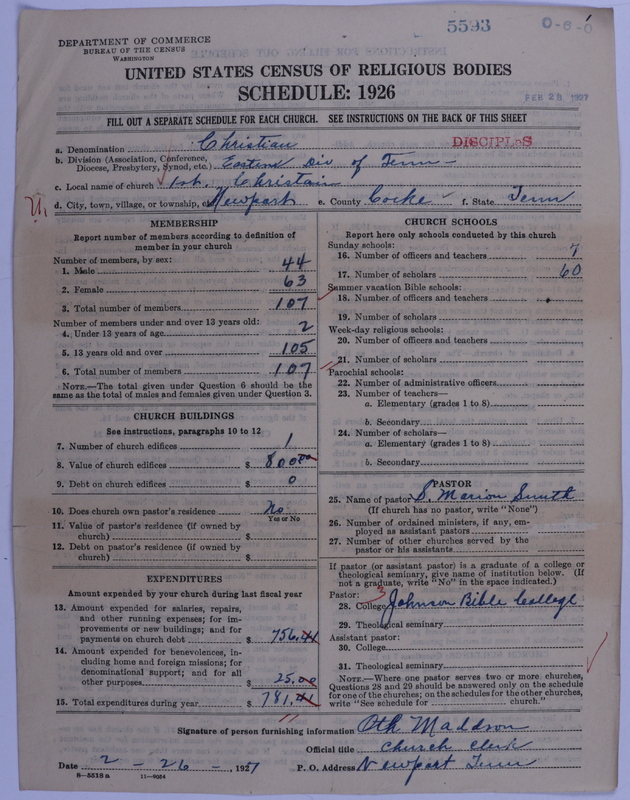 5593
0-6-0
DEPARTMENT OF COMMERCE
BUREAU OF THE CENSUS
WASHINGTON
UNITED STATES CENSUS OF RELIGIOUS BODIES
SCHEDULE: 1926
FEB 28 1927
FILL OUT A SEPARATE SCHEDULE FOR EACH CHURCH. SEE INSTRUCTIONS ON THE BACK OF THIS SHEET
a. Denomination Christian DISCIPLES
b. Division (Association, Conference, Diocese, Presbytery, Synod, etc.) Eastern Div of Tenn -
c. Local name of church 1st. Christain
d. City, town, village, or township, etc. Newport e. County Cocke - f. State Tenn
MEMBERSHIP
Report number of members according to definition of
member in your church
Number of members, by sex:
1. Male 44
2. Female 63
3. Total number of members 107
Number of members under and over 13 years old:
4. Under 13 years of age 2
5. 13 years old and over 105
6. Total number of members 107
NOTE.—The total given under Question 6 should be the
same as the total of males and females given under Question 3.
CHURCH BUILDINGS
See instructions, paragraphs 10 to 12
7. Number of church edifices 1
8. Value of church edifices $ 8000 00
9. Debt on church edifices $ 0
10. Does church own pastor's residence No
Yes or No
11. Value of pastor's residence (if owned by
church) $
12. Debt on pastor's residence (if owned by
church) $
EXPENDITURES
Amount expended by your church during last fiscal year
13. Amount expended for salaries, repairs,
and other running expenses; for im-
provements or new buildings; and for
payments on church debt $ 756.41
14. Amount expended for benevolences, in-
cluding home and foreign missions; for
denominational support; and for all
other purposes $ 25.00
15. Total expenditures during year $ 781.41
CHURCH SCHOOLS
Report here only schools conducted by this church
Sunday schools:
16. Number of officers and teachers 7
17. Number of scholars 60
Summer vacation Bible schools:
18. Number of officers and teachers
19. Number of scholars
Week-day religious schools:
20. Number of officers and teachers
21. Number of scholars
Parochial schools:
22. Number of administrative officers
23. Number of teachers—
a. Elementary (grades 1 to 8)
b. Secondary
24. Number of scholars—
a. Elementary (grades 1 to 8)
b. Secondary
PASTOR
25. Name of pastor S. Marion Smith
(If church has no pastor, write "None")
26. Number of ordained ministers, if any, em-
ployed as assistant pastors
27. Number of other churches served by the
pastor or his assistants
If pastor (or assistant pastor) is a graduate of a college or
theological seminary, give name of institution below. (If
not a graduate, write "No" in the space indicated.)
Pastor: 3
28. College Johnson Bible College
29. Theological seminary
Assistant pastor:
30. College
31. Theological seminary
NOTE.—Where one pastor serves two or more churches,
Questions 28 and 29 should be answered only on the schedule
for one of the churches; on the schedules for the other churches,
write "See schedule for church."
Signature of person furnishing information Oth Maddron
Official title Church Clerk
Date 2 - 26 - , 1927 P. O. Address Newport Tenn
8—5518a 11—9034